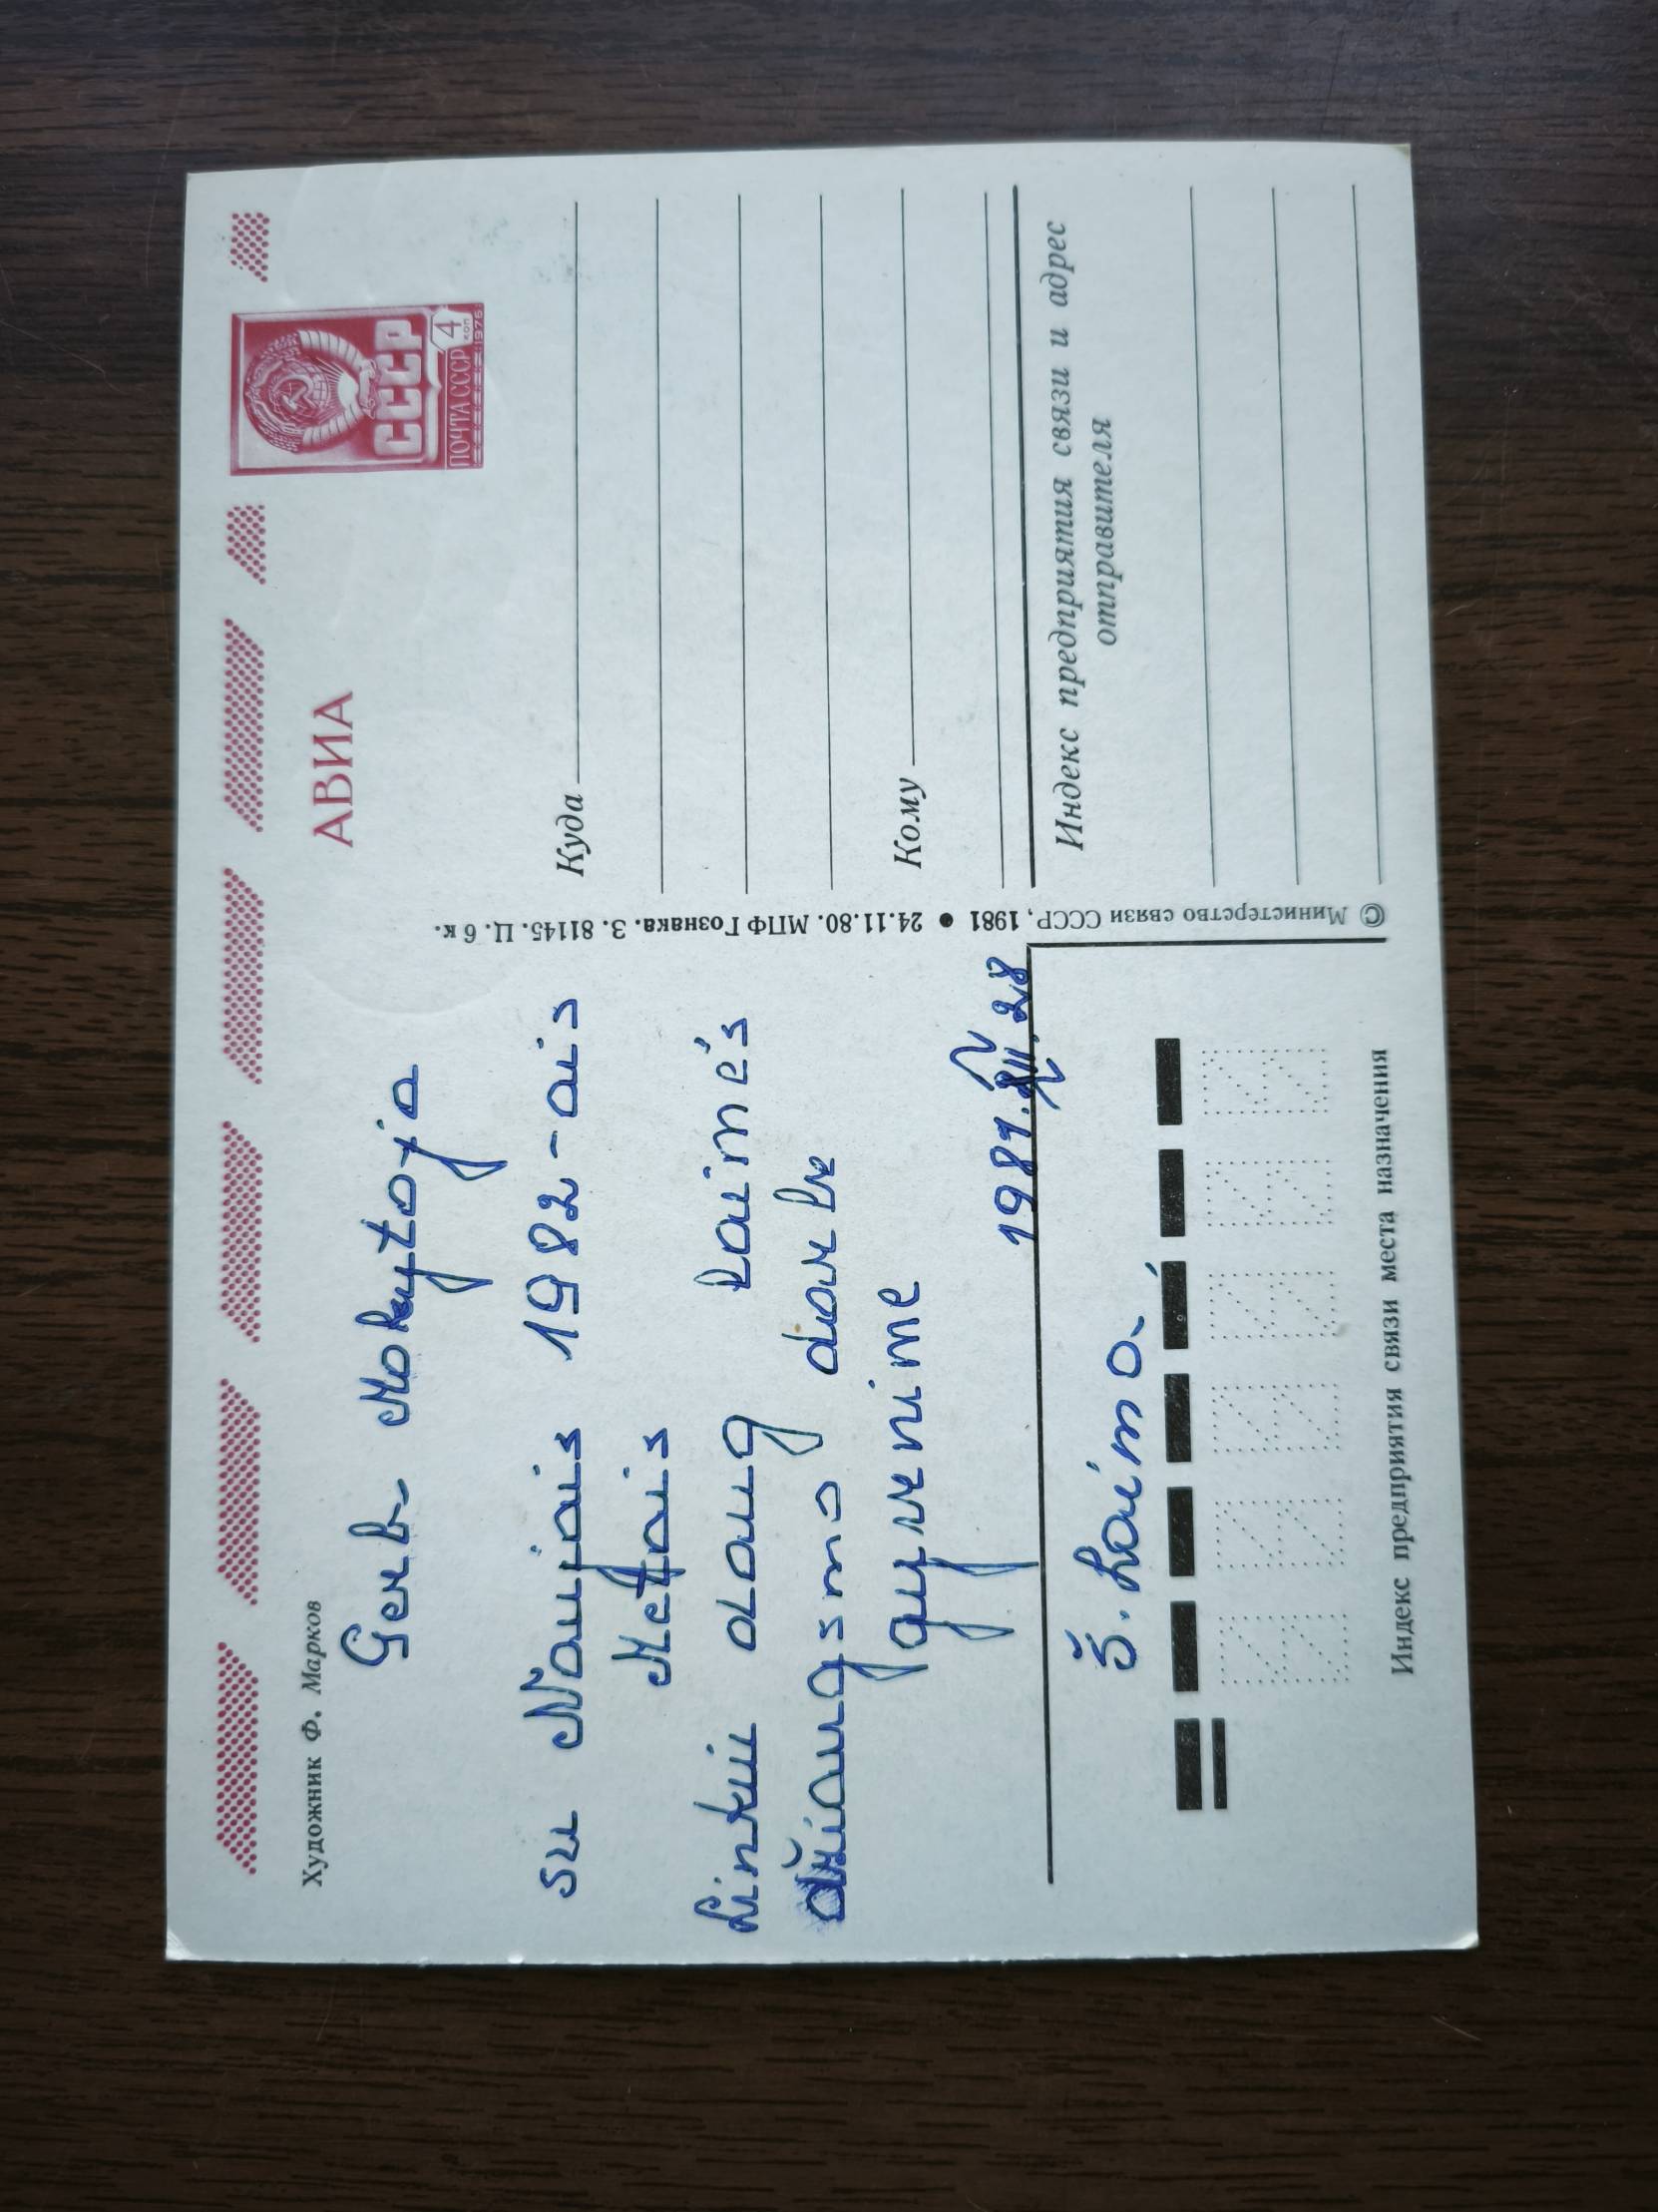 Художник Ф. Марков
Gerb. Mokytoja
su Naujais 1982-ais
Metais
Linkiu daug laimės
džiaugsmo darbe
gyvenime
1981.XII.28
Š. Laima.
Индекс предприятия связи места назначения
© Министерство связи СССР, 1981 • 24.11.80. МПФ Гознака. З. 81145. Ц. 6 к.
АВИА
СССР
ПОЧТА СССР 4
КОП
1976
Куда
Кому
Индекс предприятия связи и адрес
отправителя